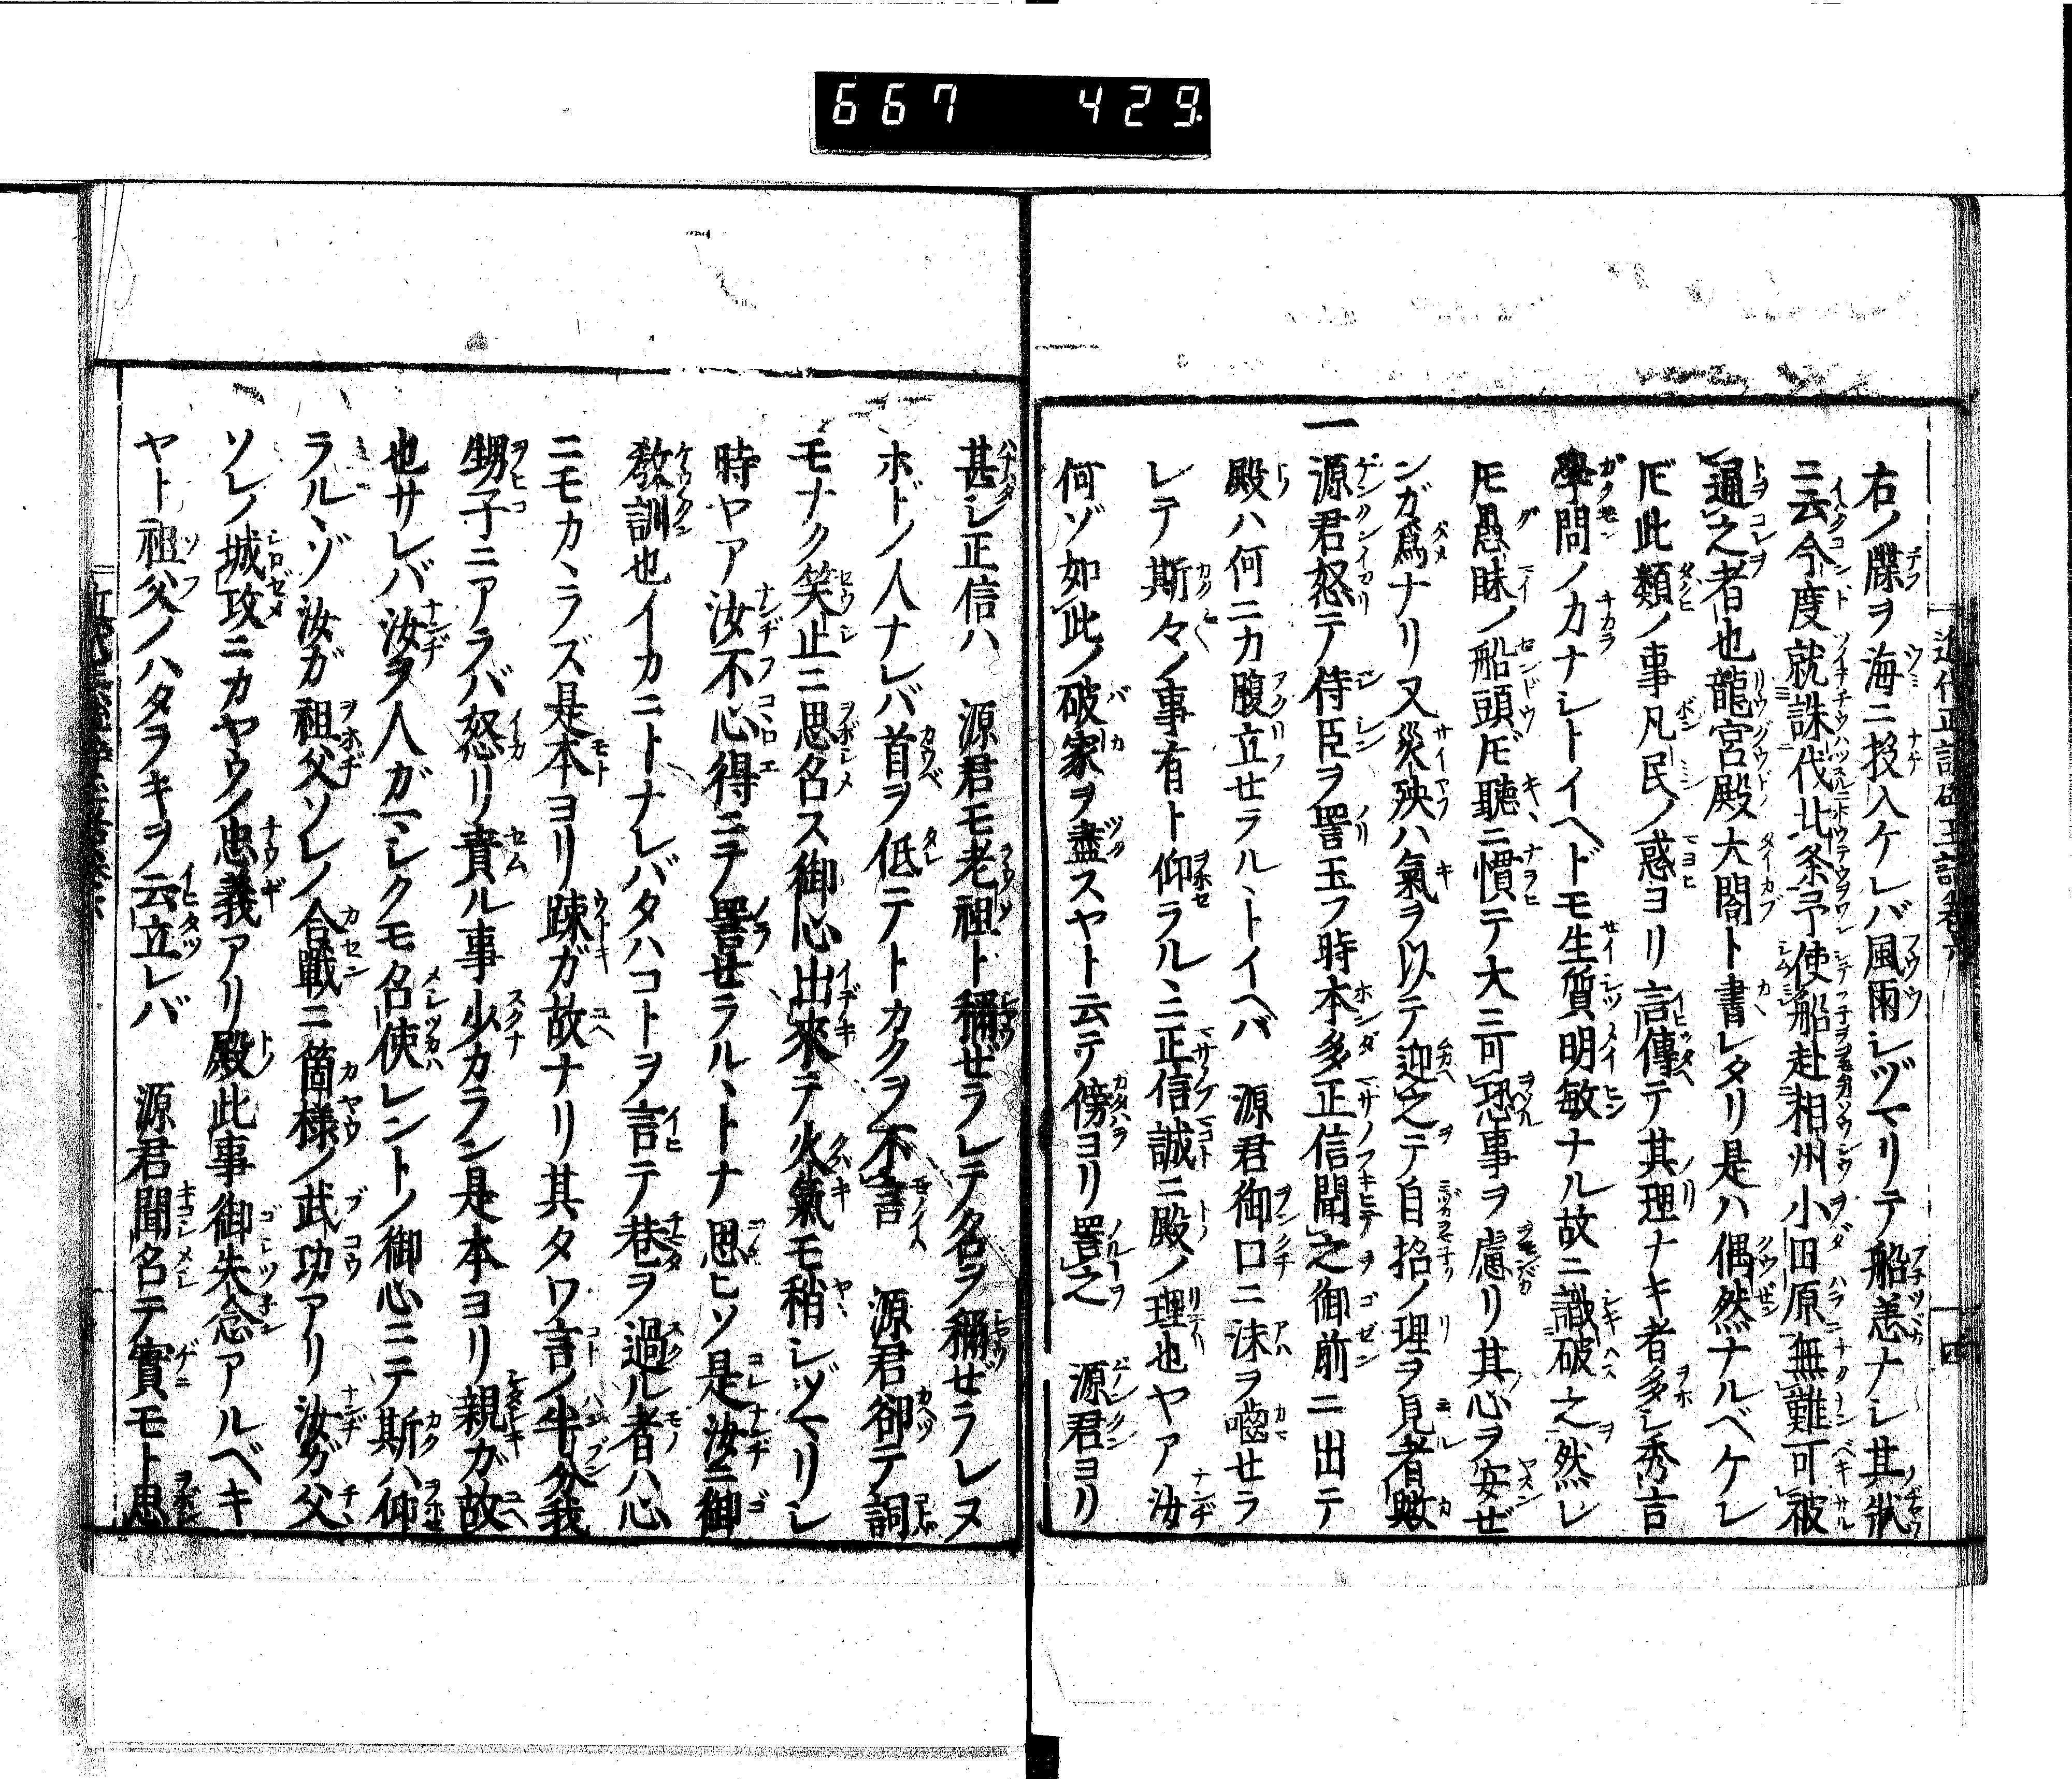 667 429
右ノ牒ヲ海ニ投入ケレバ風雨シヅマリテ船恙ナシ其狀
ニ云今度就誅伐北条予使船赴相州小田原無難可被
通之者也龍宮殿大閤ト書レタリ是ハ偶然ナルベケレ
𪜈此類ノ事凡民ノ惑ヨリ言傳テ其理ナキ者多シ秀吉
學問ノカナシトイヘドモ生質明敏ナル故ニ識破之然レ
𪜈愚昧ノ船頭𪜈聽ニ慣テ大ニ可恐事ヲ慮リ其心ヲ安ゼ
ンガ爲ナリ又災殃ハ氣ヲ以テ迎之テ自招ノ理ヲ見者歟
一源君怒テ侍臣ヲ詈玉フ時本多正信聞之御前ニ出テ
殿ハ何ニカ腹立セラルヽトイヘバ 源君御口ニ沫ヲ嚙セラ
レテ斯々ノ事有ト仰ラルヽニ正信誠ニ殿ノ理也ヤア汝
何ゾ如此ノ破家ヲ盡スヤト云テ傍ヨリ詈之 源君ヨリ
甚シ正信ハ 源君モ老祖ト稱ゼラレテ名ヲ稱ゼラレヌ
ホドノ人ナレバ首ヲ低テトカクヲ不言 源君卻テ詞
モナク笑止ニ思名ス御心出來テ火氣モ稍シヅマリシ
時ヤア汝不心得ニテ詈セラルヽトナ思ヒソ是汝ニ御
敎訓也イカニトナレバタハコトヲ言テ巷ヲ過ル者ハ心
ニモカヽラズ是本ヨリ疎ガ故ナリ其タワ言ノ半分我
甥子ニアラバ怒リ責ル事少カラン是本ヨリ親ガ故
也サレバ汝ヲ人ガマシクモ名使レントノ御心ニテ斯ハ仰
ラルヽゾ汝ガ祖父ソレノ合戰ニ箇樣ノ武功アリ汝ガ父
ソレノ城攻ニカヤウノ忠義アリ殿此事御失念アルベキ
ヤト祖父ノハタラキヲ云立レバ 源君聞名テ實モト思